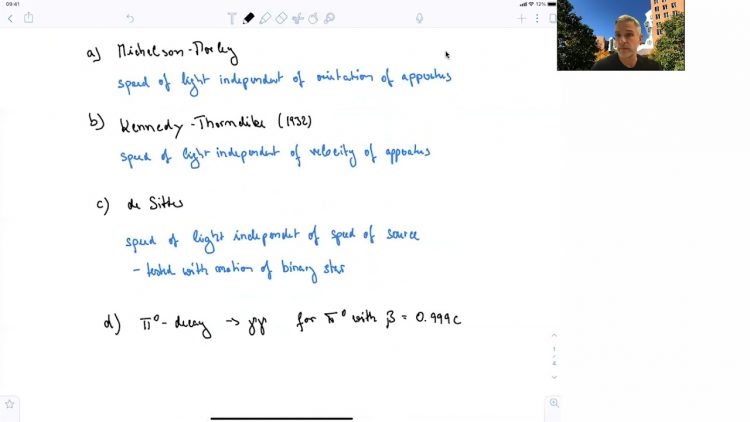 09:41
12%
a) Michelson-Morley
speed of light independent of orientation of apparatus
b) Kennedy-Thorndike (1932)
speed of light independent of velocity of apparatus
c) de Sitter
speed of light independent of speed of source
- tested with motion of binary star
d) π⁰-decay → γγ for π⁰ with β = 0.999c
1
/
4